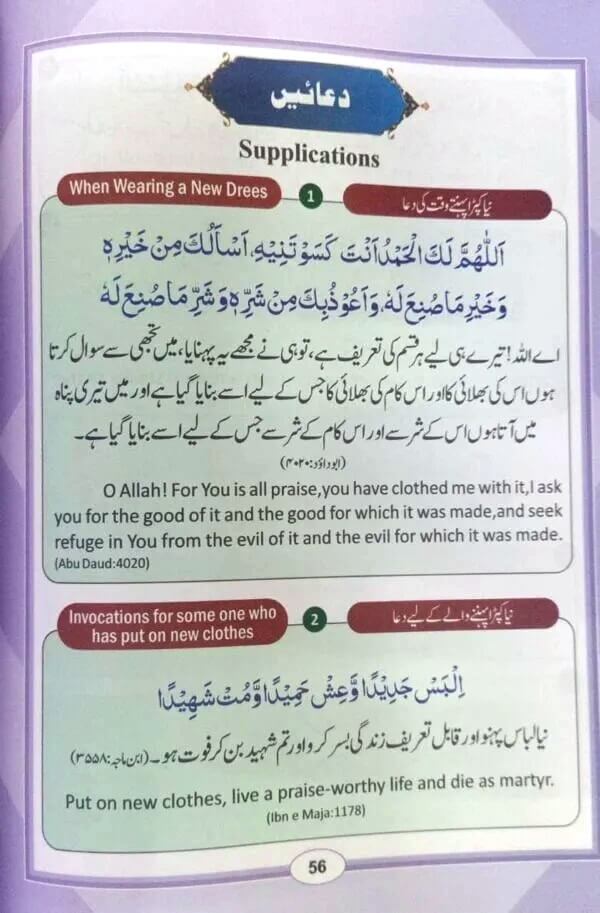 دعائیں
Supplications
When Wearing a New Drees
1
نیا کپڑا پہنتے وقت کی دعا
اَللّٰهُمَّ لَكَ الْحَمْدُ اَنْتَ كَسَوْتَنِيْهِ، اَسْاَلُكَ مِنْ خَيْرِهٖ
وَخَيْرِ مَا صُنِعَ لَهٗ، وَاَعُوْذُ بِكَ مِنْ شَرِّهٖ وَشَرِّ مَا صُنِعَ لَهٗ
اے اللہ! تیرے ہی لیے ہر قسم کی تعریف ہے، تو ہی نے مجھے یہ پہنایا، میں تجھی سے سوال کرتا
ہوں اس کی بھلائی کا اور اس کام کی بھلائی کا جس کے لیے اسے بنایا گیا ہے اور میں تیری پناہ
میں آتا ہوں اس کے شر سے اور اس کام کے شر سے جس کے لیے اسے بنایا گیا ہے۔
(ابوداؤد:۴۰۲۰)
O Allah! For You is all praise,you have clothed me with it,I ask
you for the good of it and the good for which it was made,and seek
refuge in You from the evil of it and the evil for which it was made.
(Abu Daud:4020)
Invocations for some one who
has put on new clothes
2
نیا کپڑا پہننے والے کے لیے دعا
اِلْبَسْ جَدِيْدًا وَّعِشْ حَمِيْدًا وَّمُتْ شَهِيْدًا
نیا لباس پہنو اور قابل تعریف زندگی بسر کرو اور تم شہید بن کر فوت ہو۔ (ابن ماجہ:۳۵۵۸)
Put on new clothes, live a praise-worthy life and die as martyr.
(Ibn e Maja:1178)
56